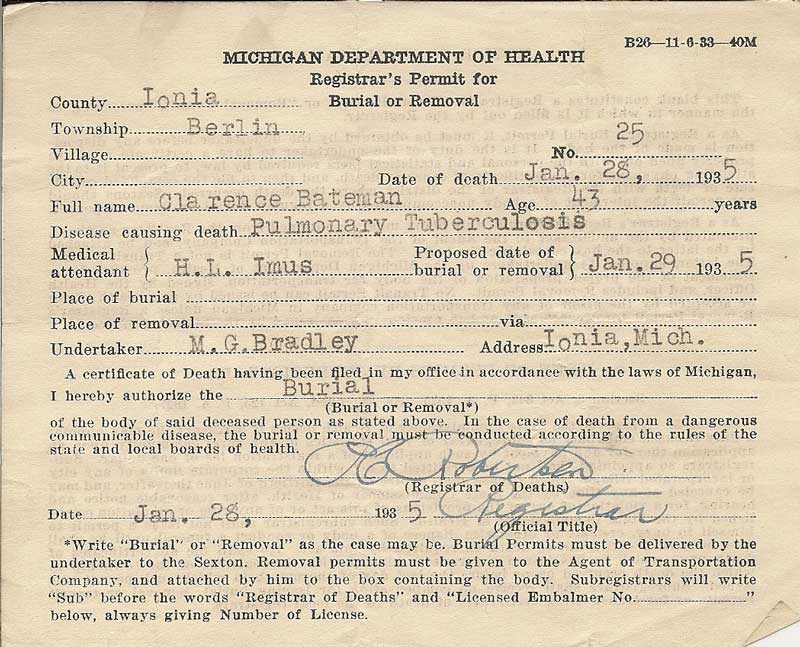 B26—11-6-33—40M
MICHIGAN DEPARTMENT OF HEALTH
Registrar's Permit for
Burial or Removal
County Ionia
Township Berlin
Village No. 25
City Date of death Jan. 28, 1935
Full name Clarence Bateman Age 43 years
Disease causing death Pulmonary Tuberculosis
Medical attendant H.L. Imus Proposed date of burial or removal Jan.29 1935
Place of burial
Place of removal via
Undertaker M.G.Bradley Address Ionia,Mich.
A certificate of Death having been filed in my office in accordance with the laws of Michigan,
I hereby authorize the Burial
(Burial or Removal*)
of the body of said deceased person as stated above. In the case of death from a dangerous
communicable disease, the burial or removal must be conducted according to the rules of the
state and local boards of health.
Robertson
(Registrar of Deaths)
Date Jan. 28, 1935 Registrar
(Official Title)
*Write "Burial" or "Removal" as the case may be. Burial Permits must be delivered by the
undertaker to the Sexton. Removal permits must be given to the Agent of Transportation
Company, and attached by him to the box containing the body. Subregistrars will write
"Sub" before the words "Registrar of Deaths" and "Licensed Embalmer No. "
below, always giving Number of License.